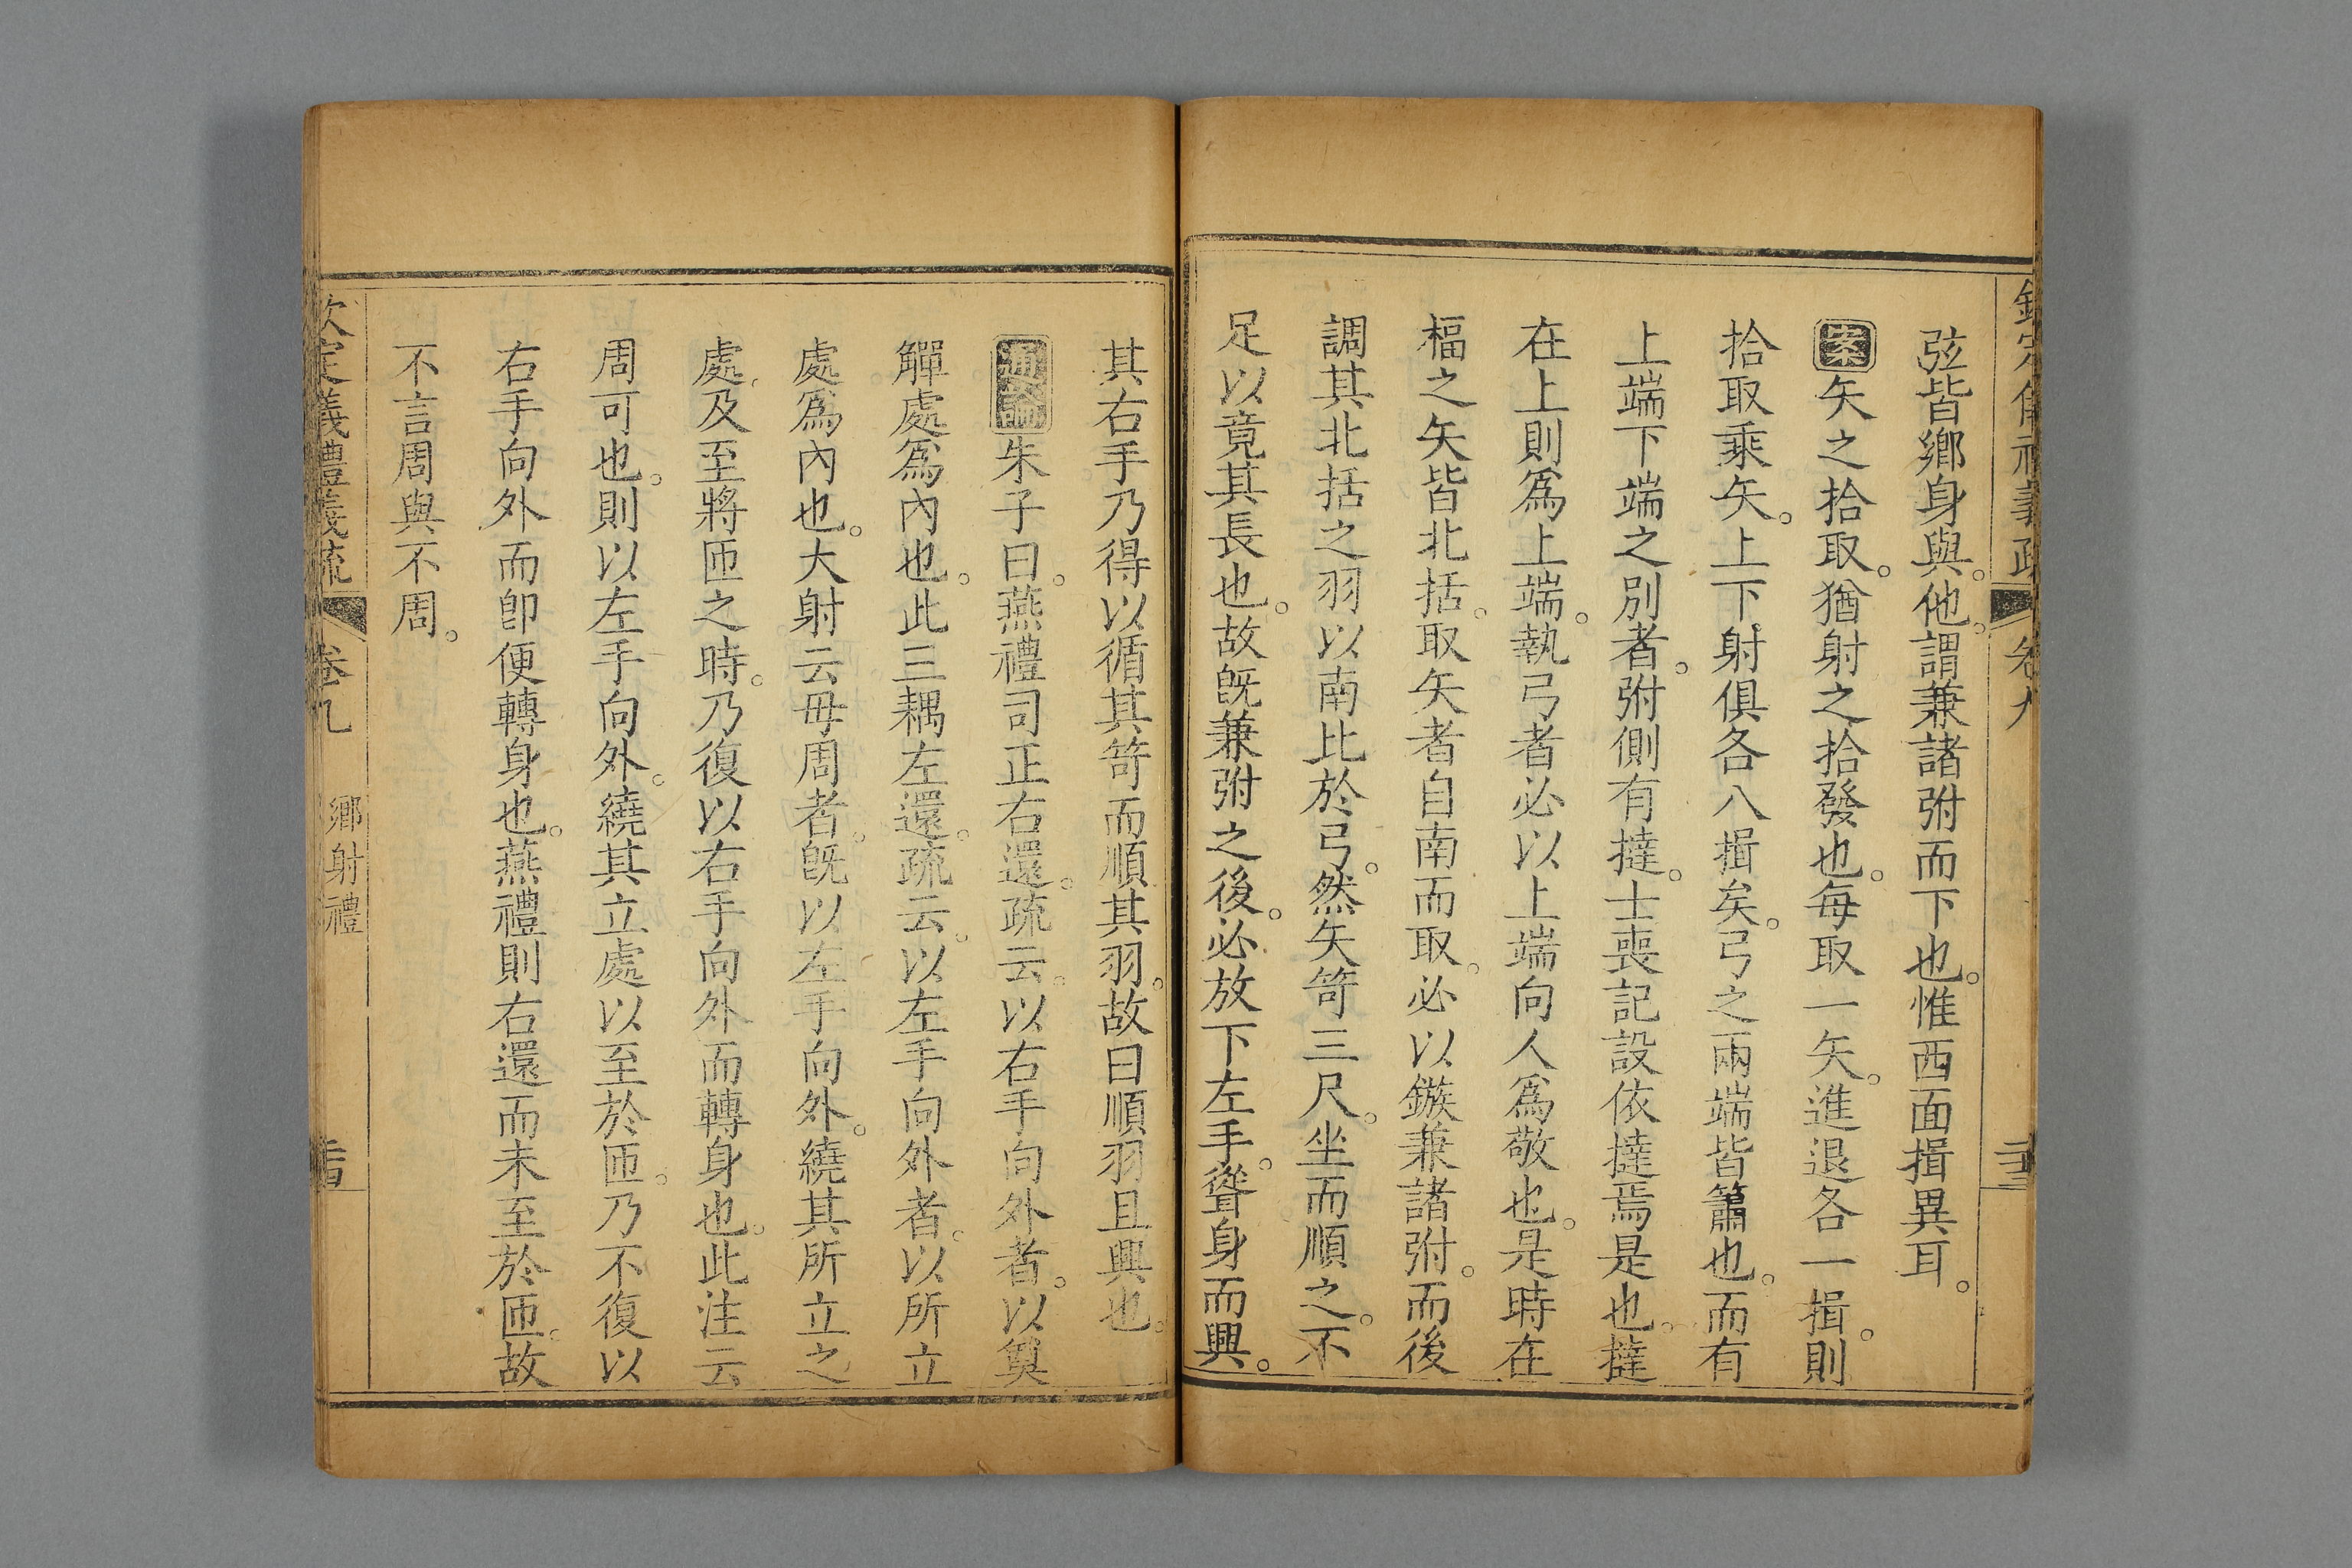 弦皆鄉身與。他。謂兼諸弣而下也。惟西面揖異耳。
案矢之拾取。猶射之拾發也。每取一矢。進退各一揖。則
拾取乘矢。上下射俱各八揖矣。弓之兩端皆簫也。而有
上端下端之別者。弣側有撻。士喪記設依撻焉是也。撻
在上則爲上端。執弓者必以上端向人爲敬也。是時在
楅之矢皆北括。取矢者自南而取。必以鏃兼諸弣。而後
調其北括之羽以南比於弓。然矢笴三尺。坐而順之。不
足以竟其長也。故旣兼弣之後。必放下左手。聳身而興。
其右手乃得以循其笴而順其羽。故曰順羽且興也。
通論朱子曰。燕禮司正右還。疏云。以右手向外者。以奠
觶處爲內也。此三耦左還。疏云。以左手向外者。以所立
處爲內也。大射云毋周者。旣以左手向外。繞其所立之
處。及至將匝之時。乃復以右手向外而轉身也。此注云
周可也。則以左手向外。繞其立處以至於匝。乃不復以
右手向外而卽便轉身也。燕禮則右還而未至於匝。故
不言周與不周。
欽定義禮義疏 卷九 鄉射禮